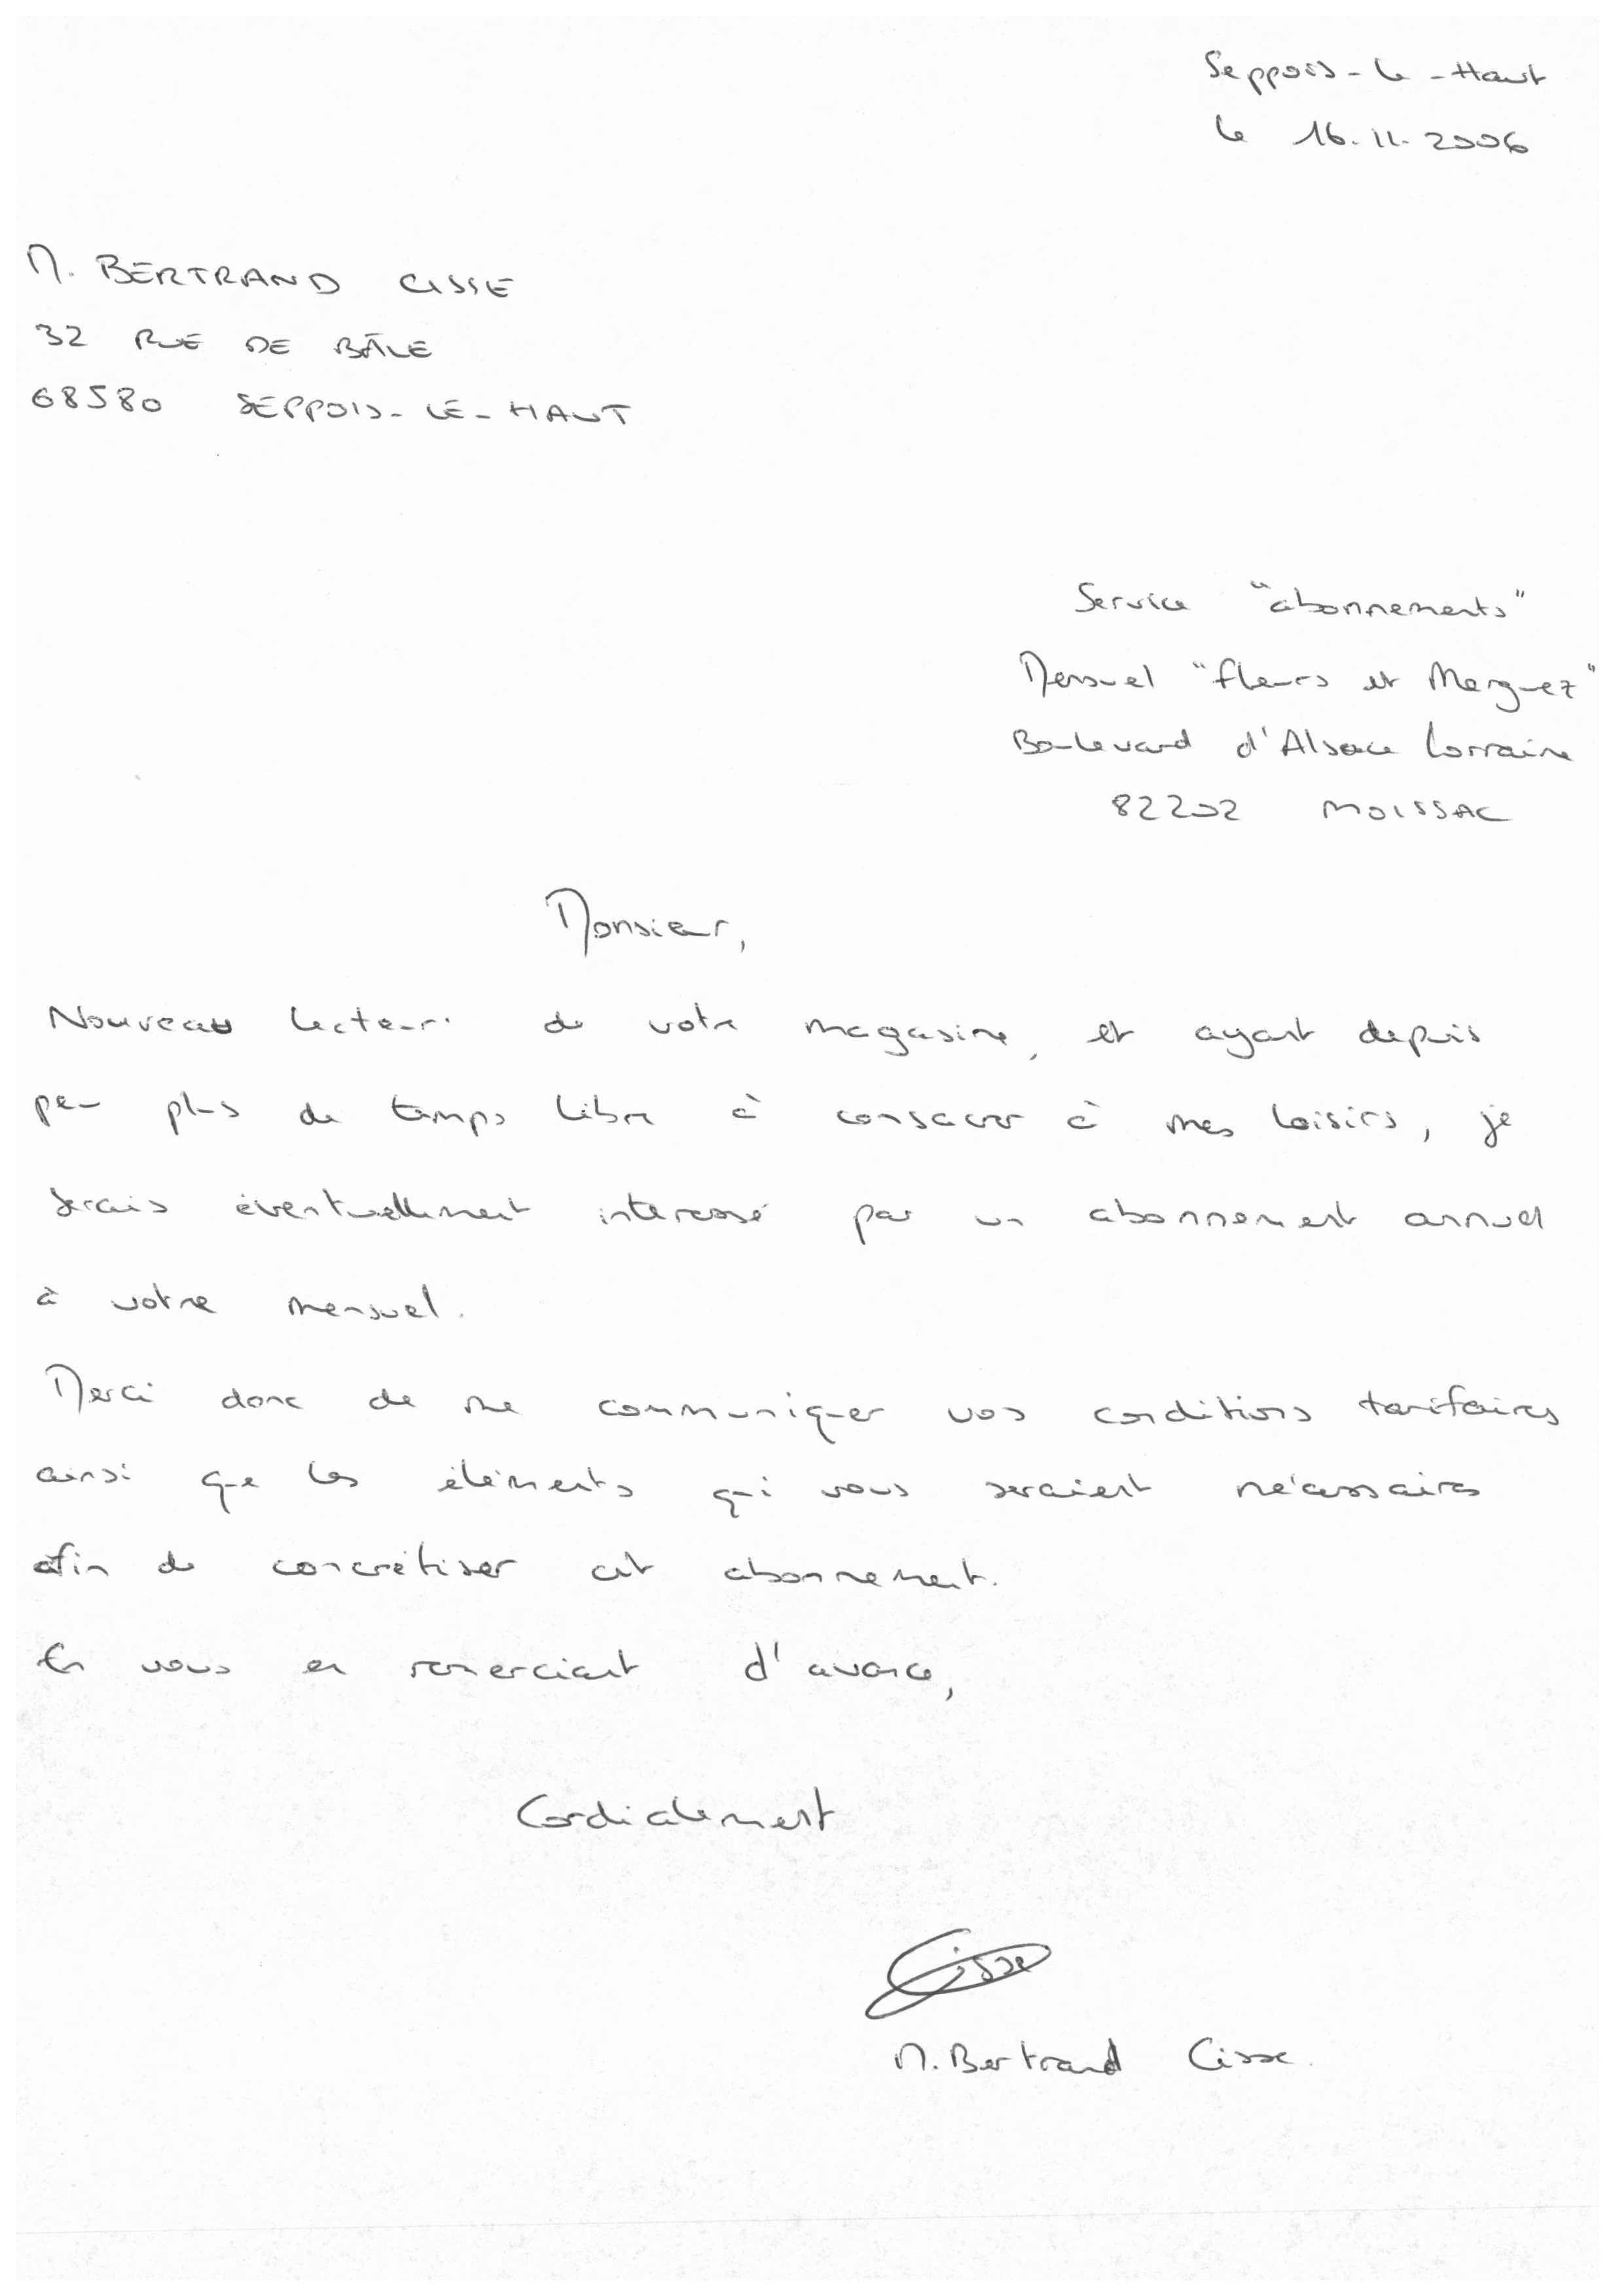 Seppois-le-Haut
le 16.11.2006
M. BERTRAND CISSE
32 RUE DE BÂLE
68580 SEPPOIS-LE-HAUT
Service "abonnements"
Mensuel "fleurs et Merguez"
Boulevard d'Alsace Lorraine
82202 MOISSAC
Monsieur,
Nouveau lecteur de votre magasine, et ayant depuis
peu plus de temps libre à consacrer à mes loisirs, je
serais éventuellement interessé par un abonnement annuel
à votre mensuel.
Merci donc de me communiquer vos conditions tarifaires
ainsi que les éléments qui vous seraient nécessaires
afin de concrétiser cet abonnement.
En vous en remerciant d'avance,
Cordialement
Cisse
M. Bertrand Cisse.